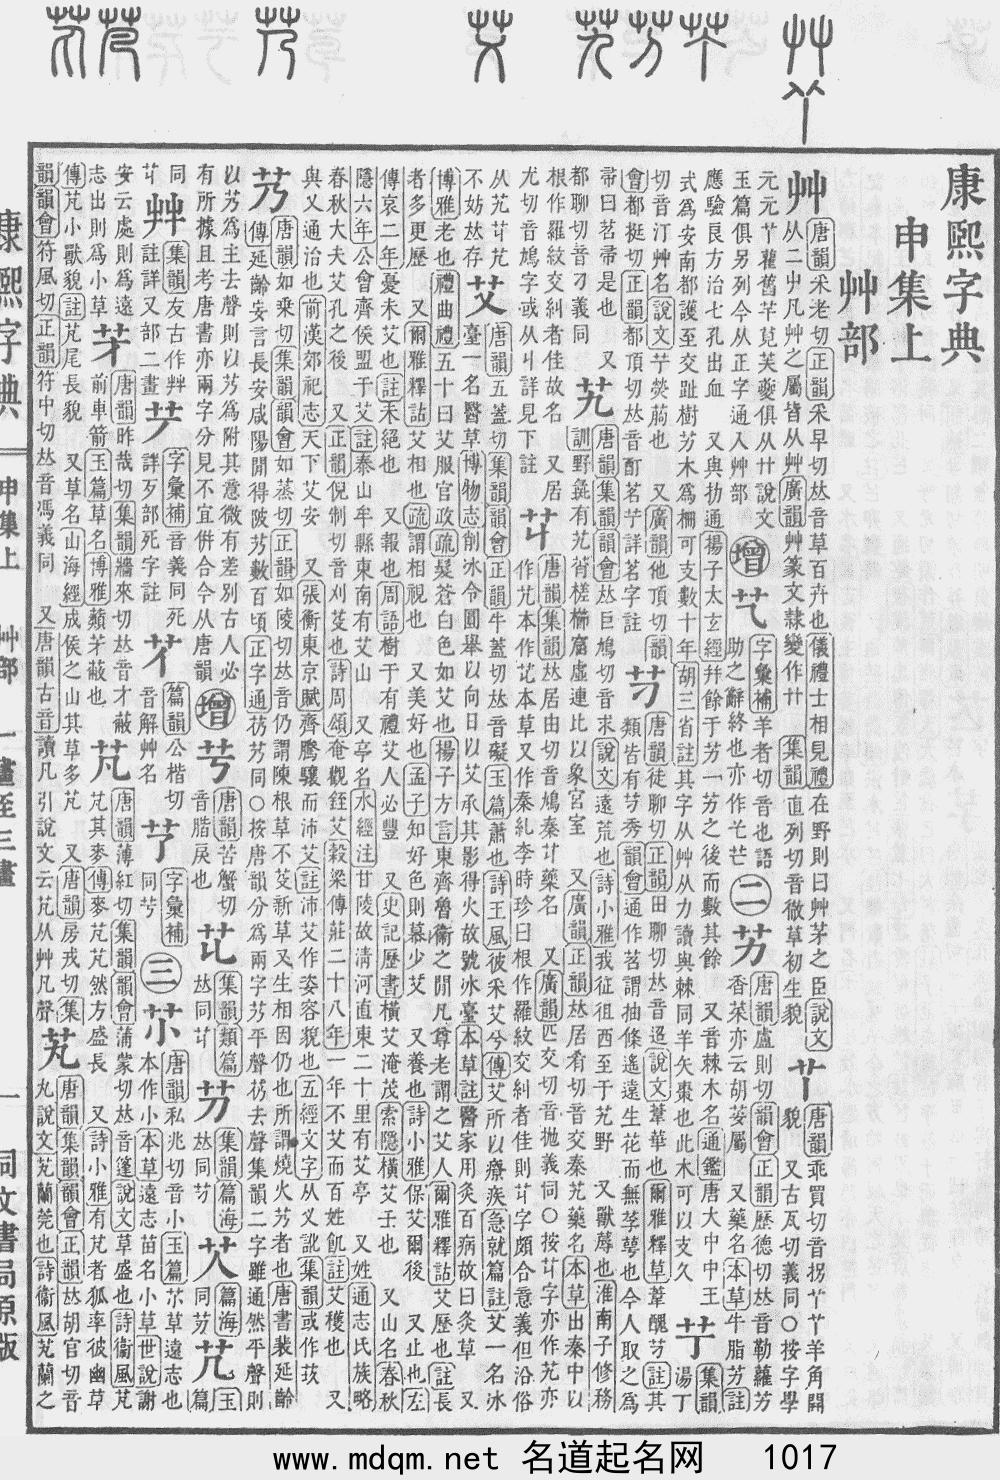 康熙字典
申集上
艸部
艸 唐韻采老切正韻采早切𠀤音草百卉也儀禮士相見禮在野則曰艸茅之臣說文
从二屮凡艸之屬皆从艸廣韻艸篆文隷變作卄 集韻直列切音徹草初生貌
唐韻乖買切音拐羊角開貌 又古瓦切義同○按字學
元元 雚舊芊莧芙蘷俱从卄說文
玉篇俱另列今从正字通入艸部 增 字彙補羊者切音也語
助之辭終也亦作芒 二 艻 唐韻盧則切韻會正韻歷德切𠀤音勒蘿艻
香菜亦云胡荽屬 又藥名本草牛脂艻註
應驗良方治七孔出血 又與扐通揚子太玄經幷餘于艻一艻之後而數其餘 又音棘木名通鑑唐大中中王
式爲安南都護至交趾樹艻木爲柵可支數十年胡三省註其字从艸从力讀與棘同羊矢棗也此木可以支久 艼 集韻湯丁
切音汀艸名說文艼熒𦿆也 又廣韻他頂切韻
會都挺切正韻都頂切𠀤音酊茗艼詳茗字註 艿
芀 唐韻徒聊切正韻田聊切𠀤音迢說文葦華也爾雅釋草葦醜芀註其
類皆有芀秀韻會通作苕謂抽條遙遠生花而無莩萼也今人取之爲
帚曰苕帚是也 又
都聊切音刁義同 艽 唐韻集韻韻會𠀤巨鳩切音求說文遠荒也詩小雅我征徂西至于艽野 又獸蓐也淮南子修務
訓野彘有艽莦槎櫛窟虛連比以象宮室 又廣韻正韻𠀤居肴切音交秦艽藥名本草出秦中以
根作羅紋交糾者佳故名 又居
尤切音鳩字或从丩詳見下註
唐韻集韻𠀤居由切音鳩秦艽藥名 又廣韻匹交切音拋義同
艾 唐韻五蓋切集韻韻會正韻牛蓋切𠀤音礙玉篇蕭也詩王風彼采艾兮傳艾所以療疾急就篇註艾一名冰
臺一名醫草博物志削冰令圓舉以向日以艾承其影得火故號冰臺本草註醫家用灸百病故曰灸草 又
博雅老也禮曲禮五十曰艾服官政疏髮蒼白色如艾也揚子方言東齊魯衞之閒凡尊老謂之艾人爾雅釋詁艾歷也註長
者多更歷 又爾雅釋詁艾相也疏謂相視也 又美好也孟子知好色則慕少艾 又養也詩小雅保艾爾後 又止也左
傳哀二年憂未艾也註未絕也 又報也周語樹于有禮艾人必豐 又史記歷書橫艾淹茂索隱橫艾壬也 又山名春秋
隱六年公會齊侯盟于艾註泰山牟縣東南有艾山 又亭名水經注甘陵故淸河直東二十里有艾亭 又姓通志氏族略
春秋大夫艾孔之後 又正韻倪制切音刈芟也詩周頌奄觀銍艾穀梁傳莊二十八年一年不艾而百姓飢註艾穫也 又
與乂通治也前漢郊祀志天下艾安 又張衡東京賦齊騰驤而沛艾註沛艾作姿容貌也五經文字从乂訛集韻或作苅
艿 唐韻如乗切集韻韻會如蒸切正韻如陵切𠀤音仍謂陳根草不芟新草又生相因仍也所謂燒火艿者也唐書裴延齡
傳延齡妄言長安咸陽閒得陂艿數百頃正字通芿艿同○按唐韻分爲兩字艿平聲芿去聲集韻二字雖通然平聲則
以艿爲主去聲則以芿爲附其意微有差別古人必
有所據且考唐書亦兩字分見不宜倂合今从唐韻 增 唐韻苦蟹切
集韻類篇𠀤同 集韻篇海𠀤同芀 篇海同芀
同 艸 集韻友古作艸
註詳又部二畫 字彙補音義同死
詳歹部死字註 篇韻公楷切
音解艸名 芓 字彙補
同 三 唐韻私兆切音小玉篇 草遠志也
本作小本草遠志苗名小草世說謝
安云處則爲遠
志出則爲小草 芧 唐韻昨哉切集韻牆來切𠀤音才蔽
前車箭玉篇草名博雅蘱芧蔽也
芃 唐韻薄紅切集韻韻會蒲蒙切𠀤音蓬說文草盛也詩衞風芃
芃其麥傳麥芃芃然方盛長 又詩小雅有芃者狐率彼幽草
傳芃小獸貌註芃尾長貌 又草名山海經成侯之山其草多芃 又唐韻房戎切集
韻韻會符風切正韻符中切𠀤音馮義同 又唐韻古音讀凡引說文云芃从艸凡聲
芄 唐韻集韻韻會正韻𠀤胡官切音
丸說文芄蘭莞也詩衞風芄蘭之
康熙字典 申集上 艸部 一畫至三畫 一 同文書局原版
www.mdqm.net 名道起名网 1017